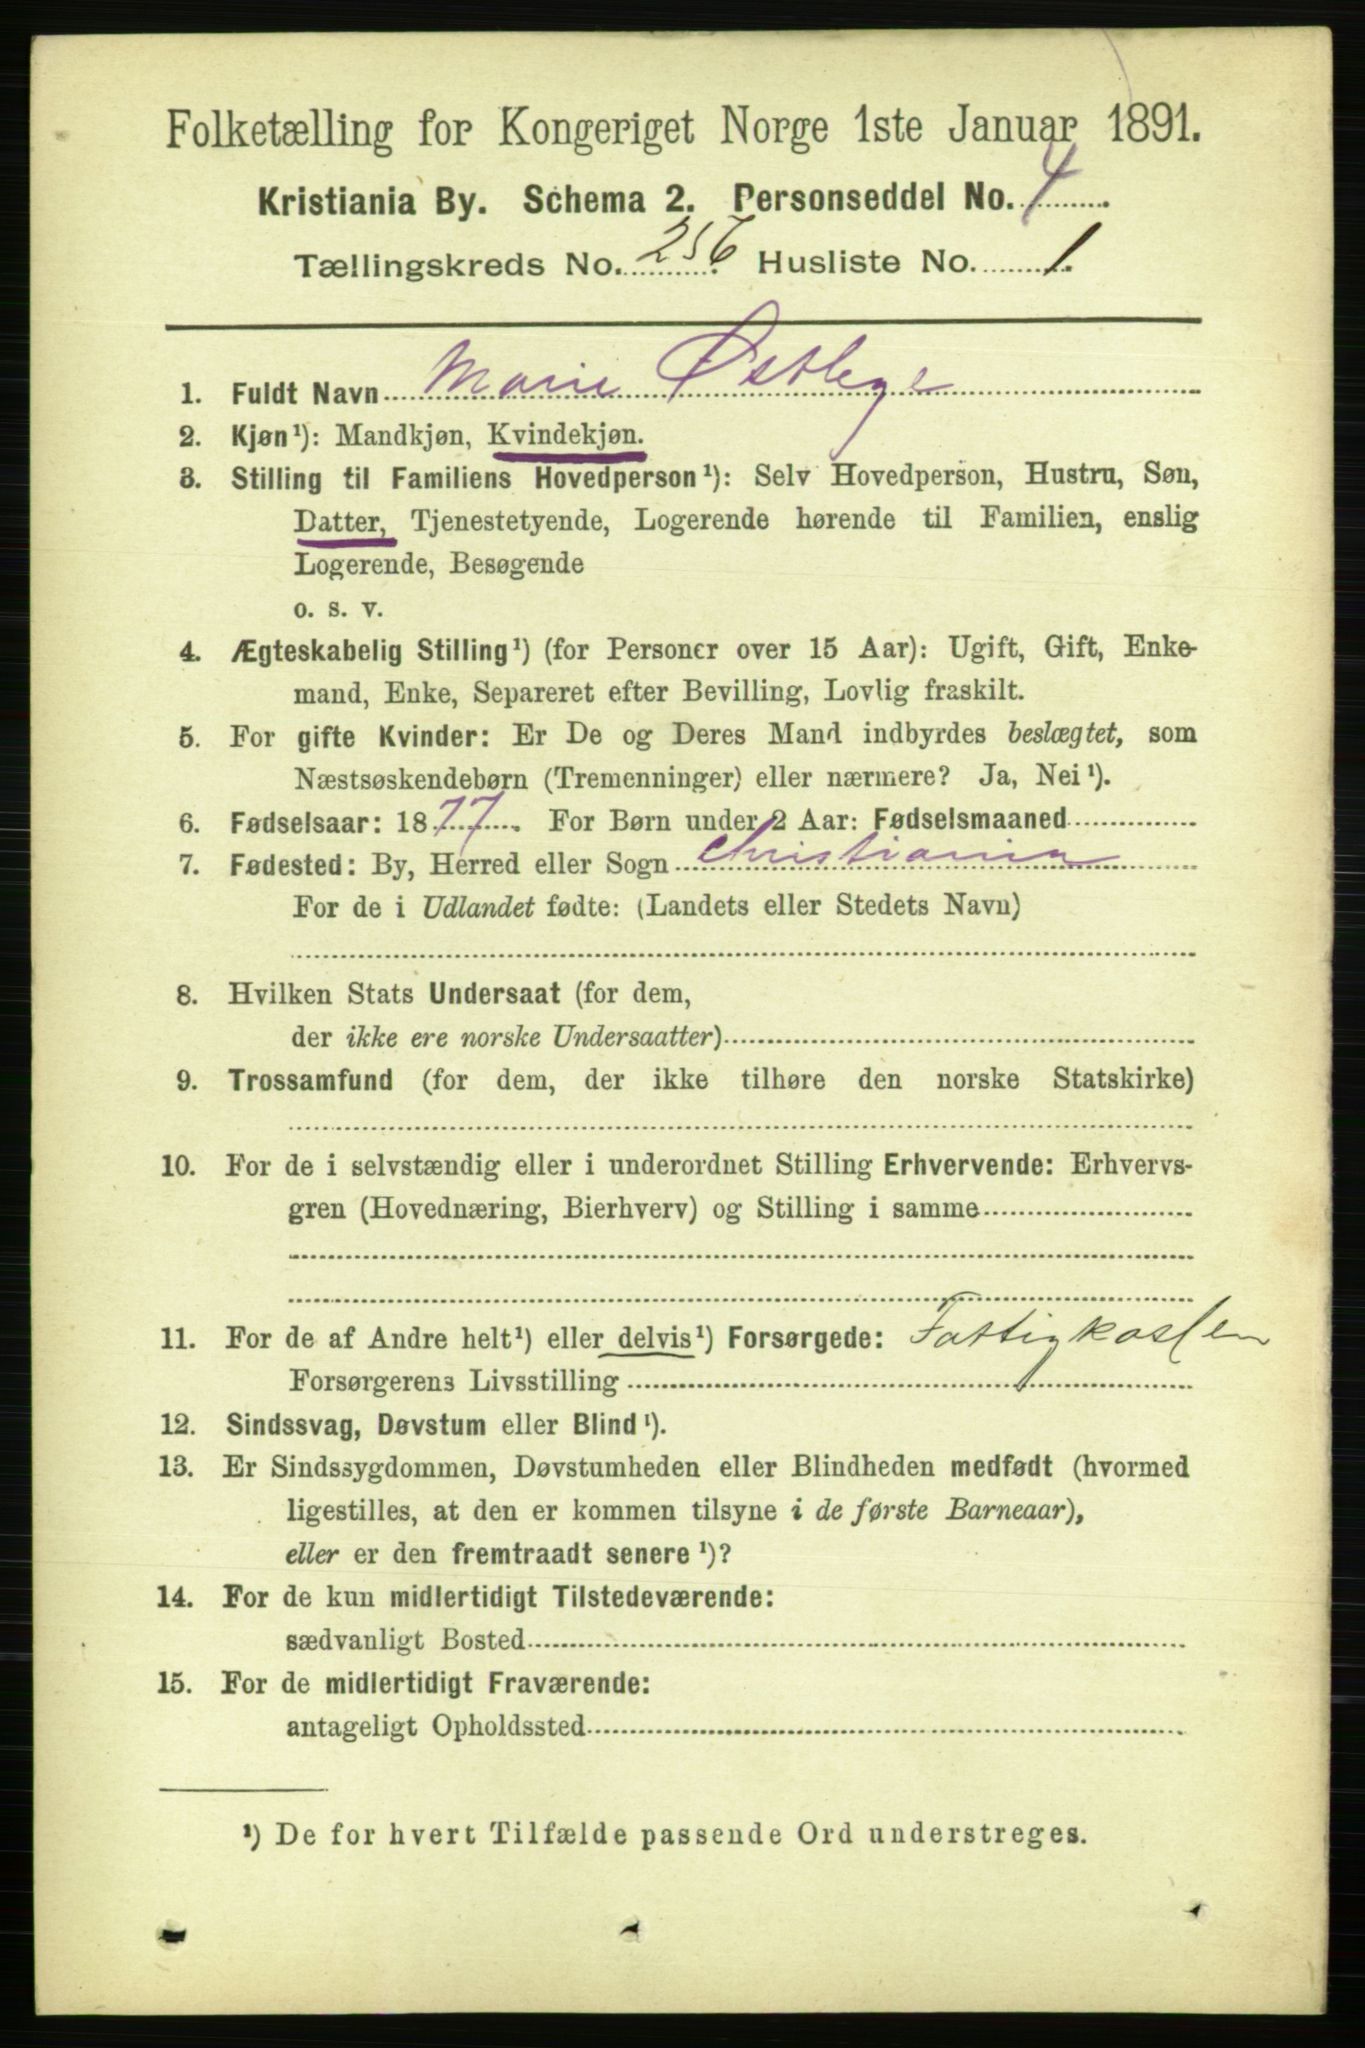 Folketælling for Kongeriget Norge 1ste Januar 1891.
Kristiania By. Schema 2. Personseddel No. 4
Tællingskreds No. 256 Husliste No. 1.
1. Fuldt Navn Marie Østbye
2. Kjøn¹): Mandkjøn, Kvindekjøn.
3. Stilling til Familiens Hovedperson¹): Selv Hovedperson, Hustru, Søn,
Datter, Tjenestetyende, Logerende hørende til Familien, enslig
Logerende, Besøgende
o. s. v.
4. Ægteskabelig Stilling¹) (for Personer over 15 Aar): Ugift, Gift, Enke-
mand, Enke, Separeret efter Bevilling, Lovlig fraskilt.
5. For gifte Kvinder: Er De og Deres Mand indbyrdes beslægtet, som
Næstsøskendebørn (Tremenninger) eller nærmere? Ja, Nei¹).
6. Fødselsaar: 1877. For Børn under 2 Aar: Fødselsmaaned
7. Fødested: By, Herred eller Sogn Christiania
For de i Udlandet fødte: (Landets eller Stedets Navn)
8. Hvilken Stats Undersaat (for dem,
der ikke ere norske Undersaatter)
9. Trossamfund (for dem, der ikke tilhøre den norske Statskirke)
10. For de i selvstændig eller i underordnet Stilling Erhvervende: Erhvervs-
gren (Hovednæring, Bierhverv) og Stilling i samme
11. For de af Andre helt¹) eller delvis¹) Forsørgede: Fattigkassen
Forsørgerens Livsstilling
12. Sindssvag, Døvstum eller Blind¹).
13. Er Sindssygdommen, Døvstumheden eller Blindheden medfødt (hvormed
ligestilles, at den er kommen tilsyne i de første Barneaar),
eller er den fremtraadt senere¹)?
14. For de kun midlertidigt Tilstedeværende:
sædvanligt Bosted
15. For de midlertidigt Fraværende:
antageligt Opholdssted
¹) De for hvert Tilfælde passende Ord understreges.